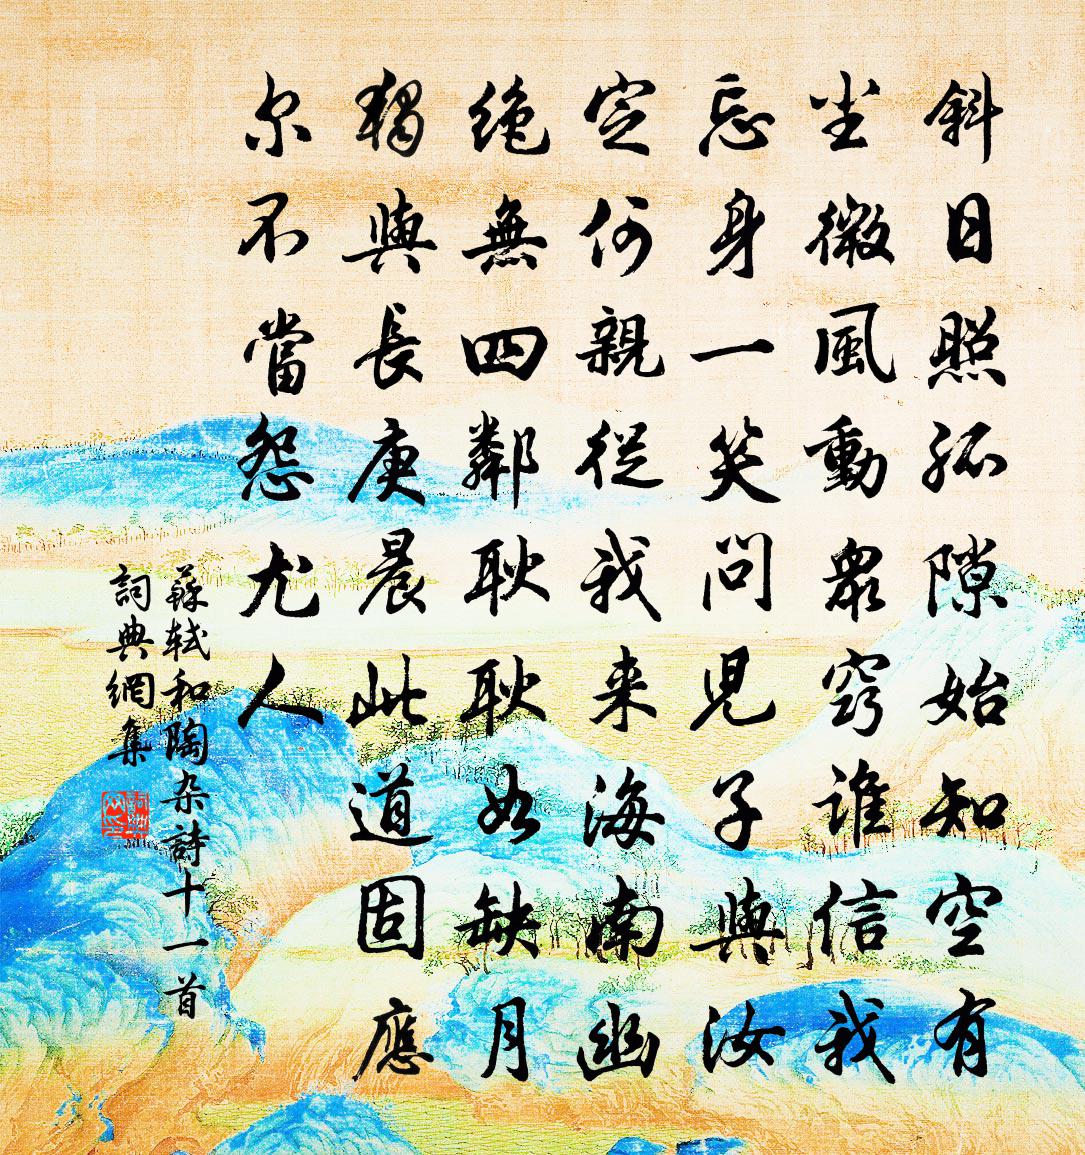 斜日照孤隙始知空有
尘微風動衆竅誰信我
忘身一笑問兒子與汝
定何親從我来海南幽
绝無四鄰耿耿如缺月
獨與長庚晨此道固應
尔不當怨尤人
蘇軾和陶杂詩十一首
詞典網集